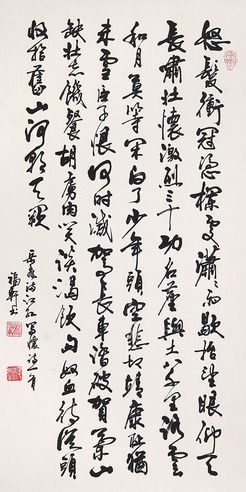 怒髮衝冠憑欄處瀟瀟雨歇抬望眼仰天
長嘯壯懷激烈三十功名塵與土八千里路雲
和月莫等閑白了少年頭空悲切靖康恥猶
未雪臣子恨何時滅駕長車踏破賀蘭山
缺壯志饑餐胡虜肉笑談渴飲匈奴血待從頭
收拾舊山河朝天闕
岳飛詩江紅寫懷詩一首
福軒書